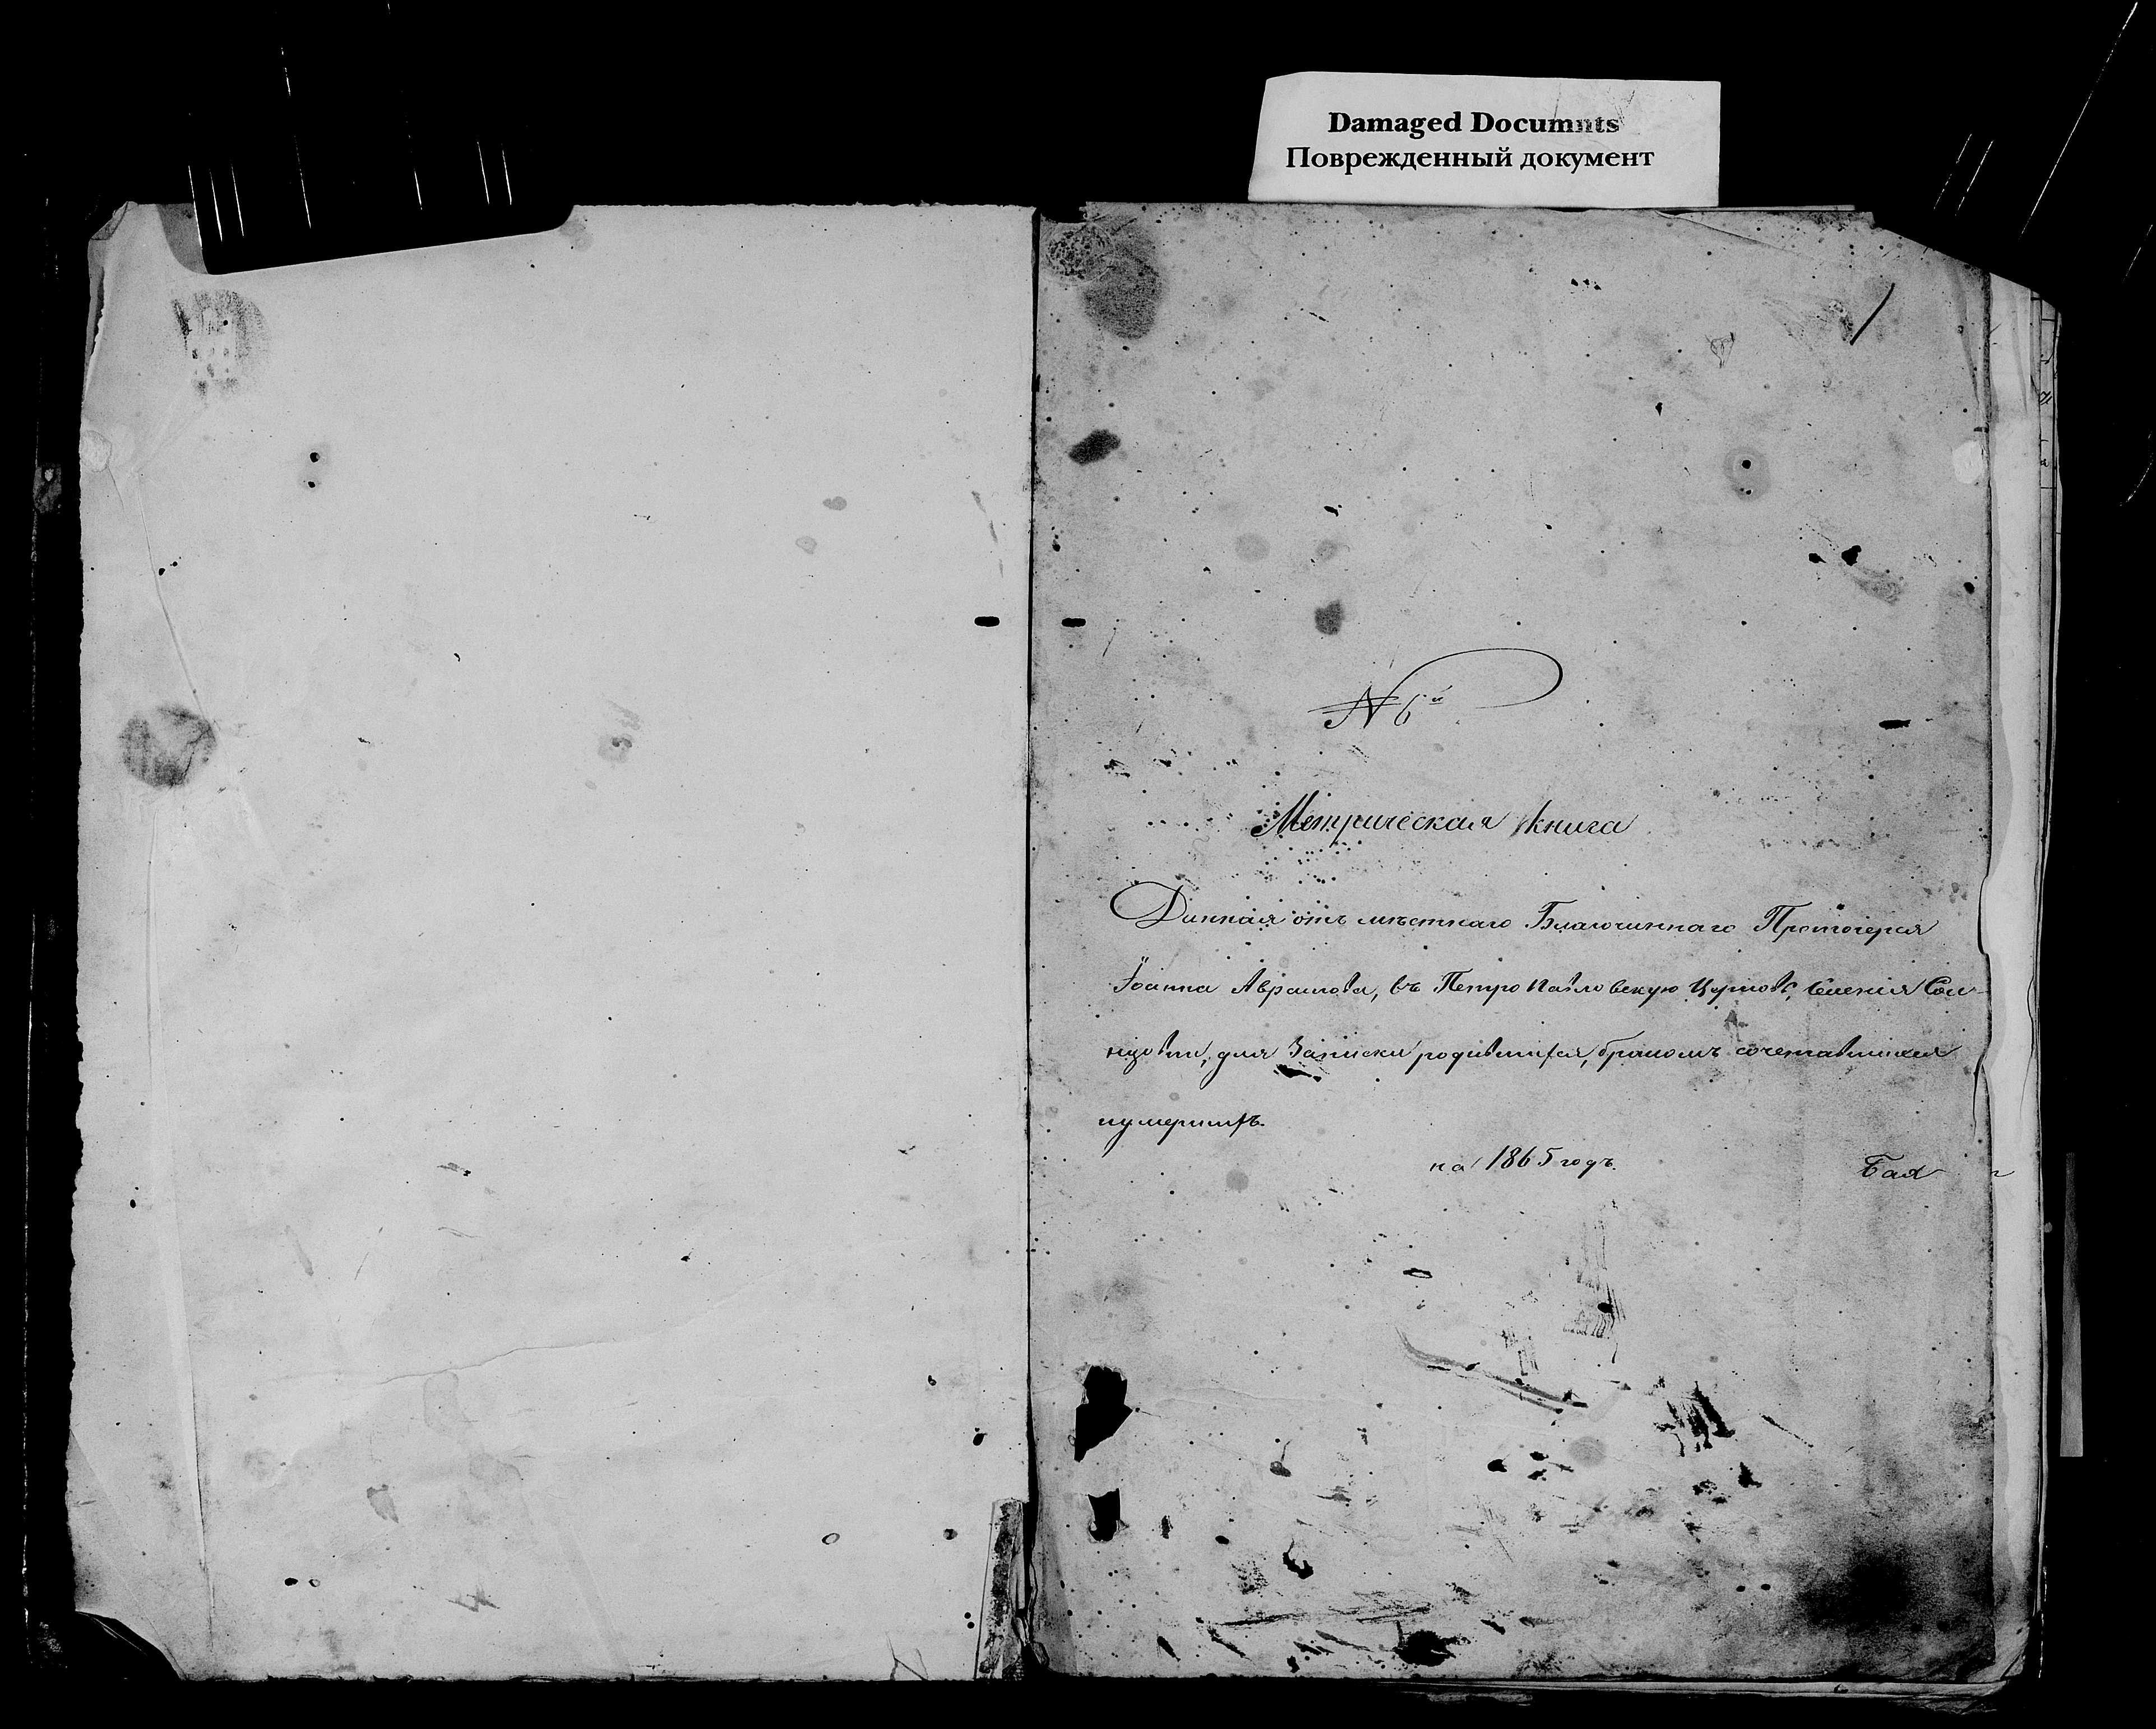 Damaged Documnts
Поврежденный документ
№ 6й
Метрическая книга
Данная отъ мѣстнаго Благочиннаго Протоіерея
Іоанна Аврамова, въ Петропавловскую Церковь, селенія
для Записки родившихся, бракомъ сочетавшихся
и умершихъ.
на 1865 годъ.